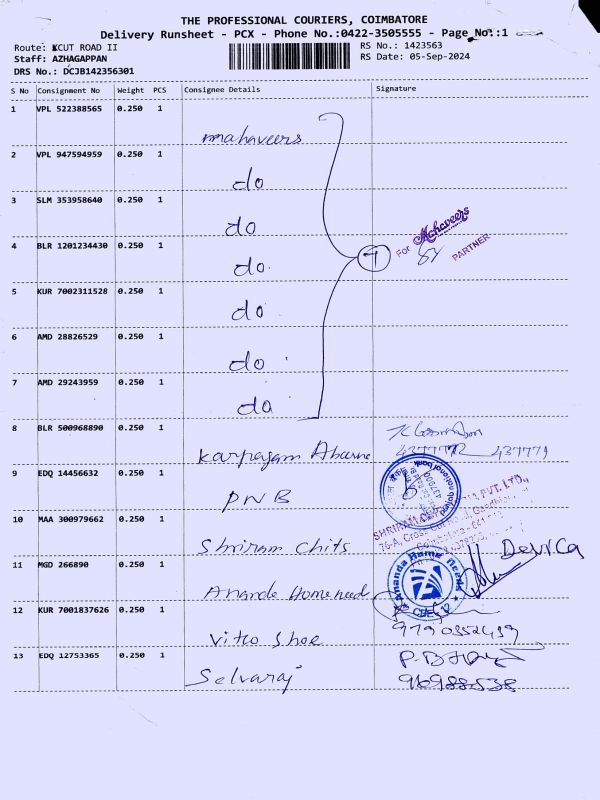 THE PROFESSIONAL COURIERS, COIMBATORE
Delivery Runsheet - PCX - Phone No.:0422-3505555 - Page No.:1
Route: KCUT ROAD II
RS No.: 1423563
Staff: AZHAGAPPAN
RS Date: 05-Sep-2024
DRS No.: DCJB142356301
S No Consignment No Weight PCS Consignee Details Signature
1 VPL 522388565 0.250 1 mahaveers
2 VPL 947594959 0.250 1 do
3 SLM 353958640 0.250 1 do
4 BLR 1201234430 0.250 1 do 7 For Mahaveers PARTNER
5 KUR 7002311528 0.250 1 do
6 AMD 28826529 0.250 1 do
7 AMD 29243959 0.250 1 do
8 BLR 500968890 0.250 1 Karpagam 437779
9 EDQ 14456632 0.250 1 PNB national bank
10 MAA 300979662 0.250 1 Shriram Chits PVT. LTD.,
76-A, Cross Cut
11 MGD 266890 0.250 1 Ananda Ananda Home Devica
12 KUR 7001837626 0.250 1 Shoe CBE-12
13 EDQ 12753365 0.250 1 Selvaraj